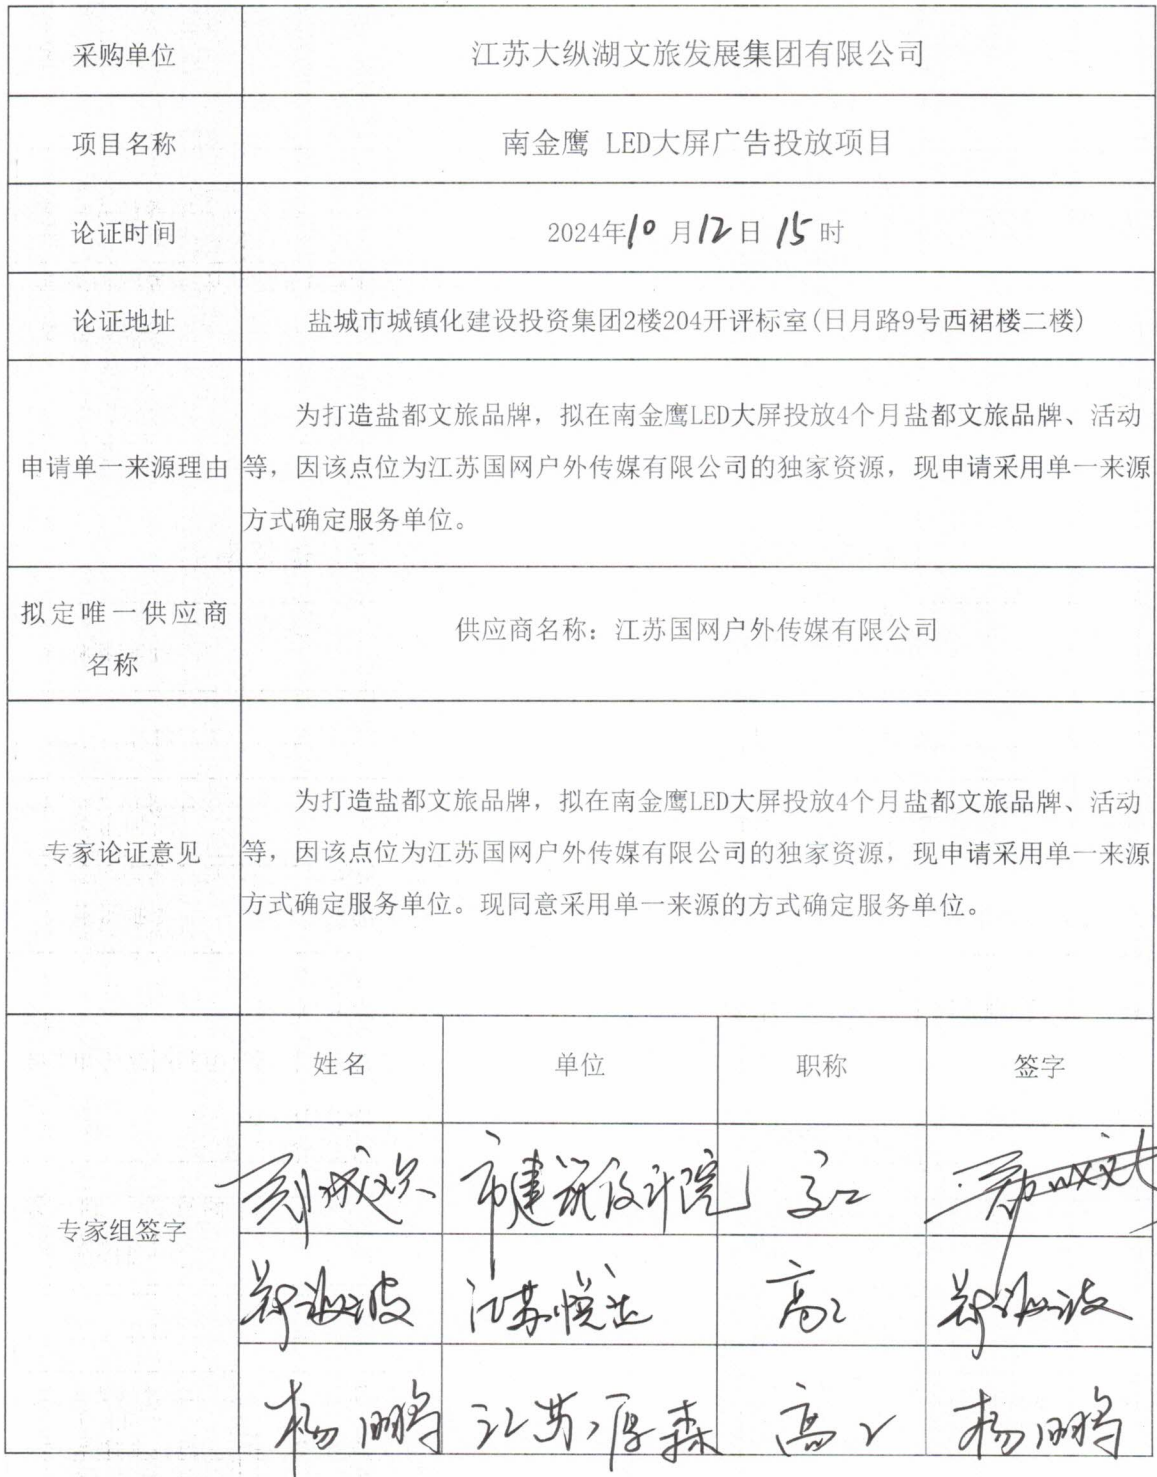 采购单位 江苏大纵湖文旅发展集团有限公司
项目名称 南金鹰 LED大屏广告投放项目
论证时间 2024年10月12日15时
论证地址 盐城市城镇化建设投资集团2楼204开评标室(日月路9号西裙楼二楼)
申请单一来源理由
为打造盐都文旅品牌，拟在南金鹰LED大屏投放4个月盐都文旅品牌、活动
等，因该点位为江苏国网户外传媒有限公司的独家资源，现申请采用单一来源
方式确定服务单位。
拟定唯一供应商
名称
供应商名称：江苏国网户外传媒有限公司
专家论证意见
为打造盐都文旅品牌，拟在南金鹰LED大屏投放4个月盐都文旅品牌、活动
等，因该点位为江苏国网户外传媒有限公司的独家资源，现申请采用单一来源
方式确定服务单位。现同意采用单一来源的方式确定服务单位。
专家组签字
姓名 单位 职称 签字
市建筑设计院 高工
江苏悦达 高工
杨鹏 江苏厚森 高工 杨鹏